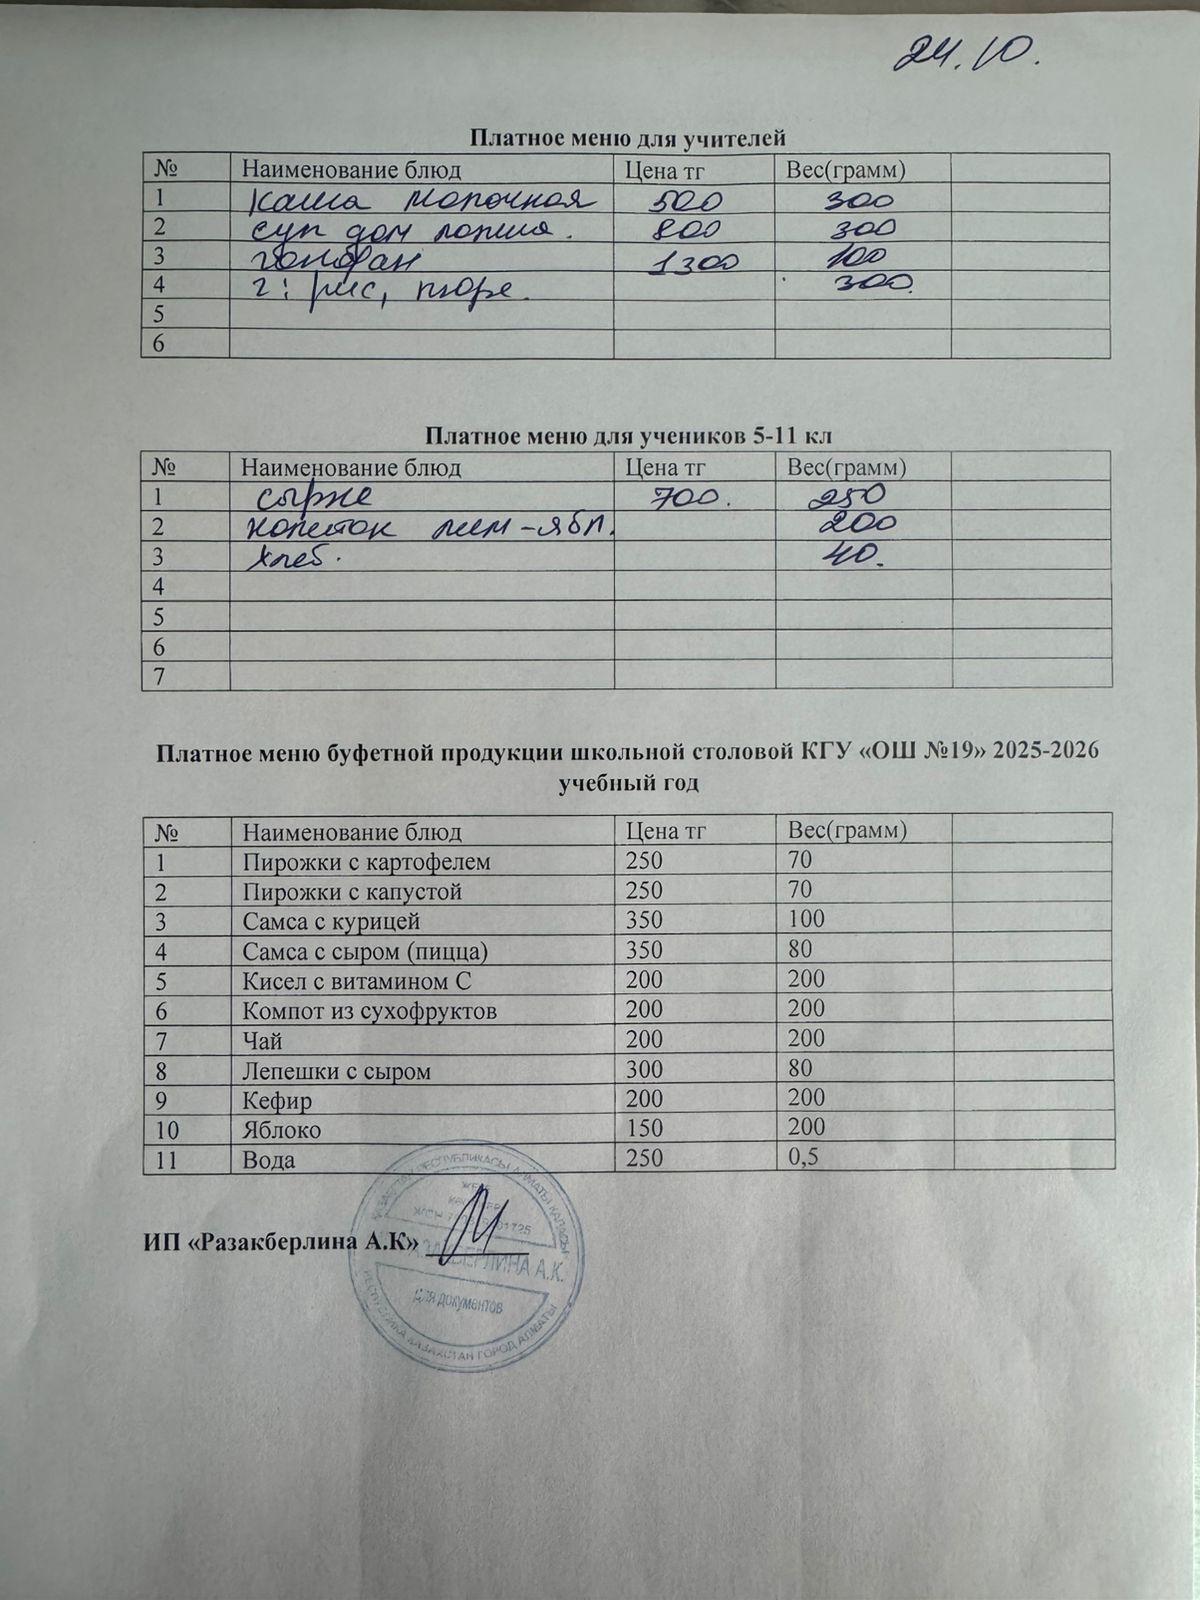 24.10.
Платное меню для учителей
№ Наименование блюд Цена тг Вес(грамм)
1 каша молочная 500 300
2 суп дом лапша. 800 300
3 1300 100
4 г: рис, пюре. 300.
5
6
Платное меню для учеников 5-11 кл
№ Наименование блюд Цена тг Вес(грамм)
1 сырне 700. 250
2 напиток лим-ябл. 200
3 хлеб. 40.
4
5
6
7
Платное меню буфетной продукции школьной столовой КГУ «ОШ №19» 2025-2026
учебный год
№ Наименование блюд Цена тг Вес(грамм)
1 Пирожки с картофелем 250 70
2 Пирожки с капустой 250 70
3 Самса с курицей 350 100
4 Самса с сыром (пицца) 350 80
5 Кисел с витамином С 200 200
6 Компот из сухофруктов 200 200
7 Чай 200 200
8 Лепешки с сыром 300 80
9 Кефир 200 200
10 Яблоко 150 200
11 Вода 250 0,5
ИП «Разакберлина А.К»
РЕСПУБЛИКАСЫ АЛМАТЫ ҚАЛАСЫ
А.К.
для документов
РЕСПУБЛИКА КАЗАХСТАН ГОРОД АЛМАТЫ